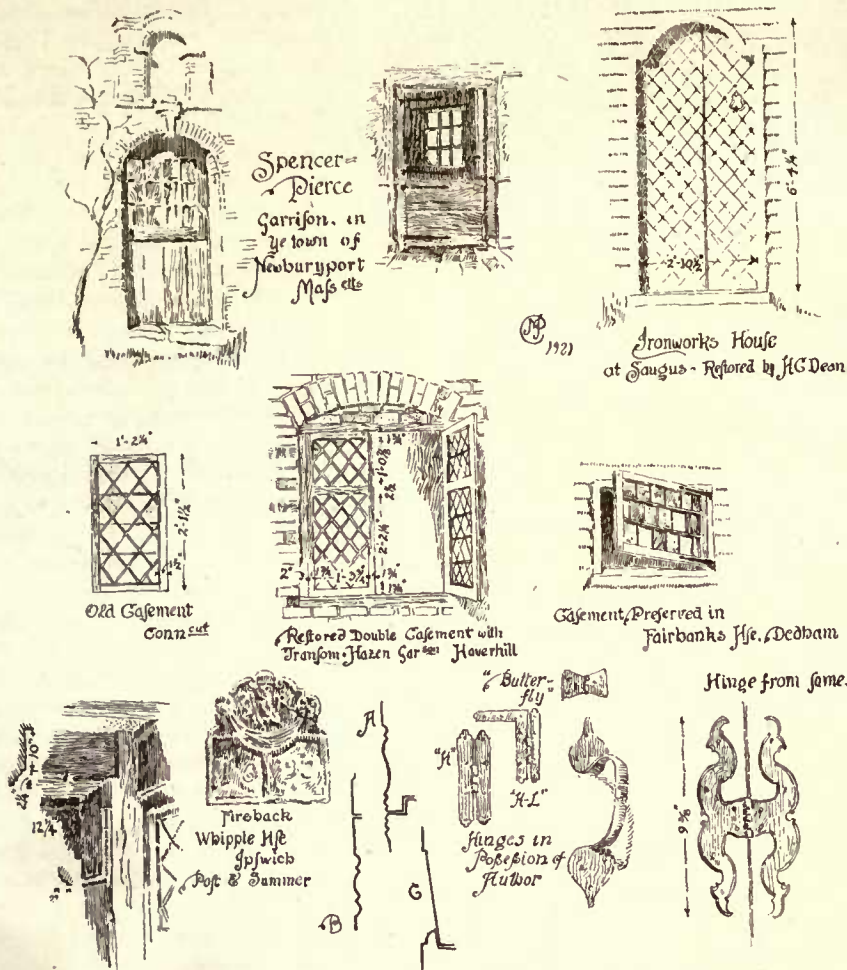 Spencer=
Pierce
Garrison, in
ye town of
Newburyport
Mass etts
MP 1921
6'-4¼"
2'-10½"
Ironworks House
at Saugus - Restored by HC Dean
1'-2¼"
2'-1½"
1½"
Old Casement
Conn cut
1¾"
1'-0⅞"
2½"
2'-2¼"
2"
1'-3¼"
1¾"
1¾"
Restored Double Casement with
Transom · Hazen Gar son Haverhill
Casement, Preserved in
Fairbanks Hse., Dedham
10"
12¼
Fireback
Whipple Hse
Ipswich
Post & Summer
A
B
C
"Butter-
fly"
"H"
"H-L"
Hinges in
Possession of
Author
Hinge from same.
9⅜"